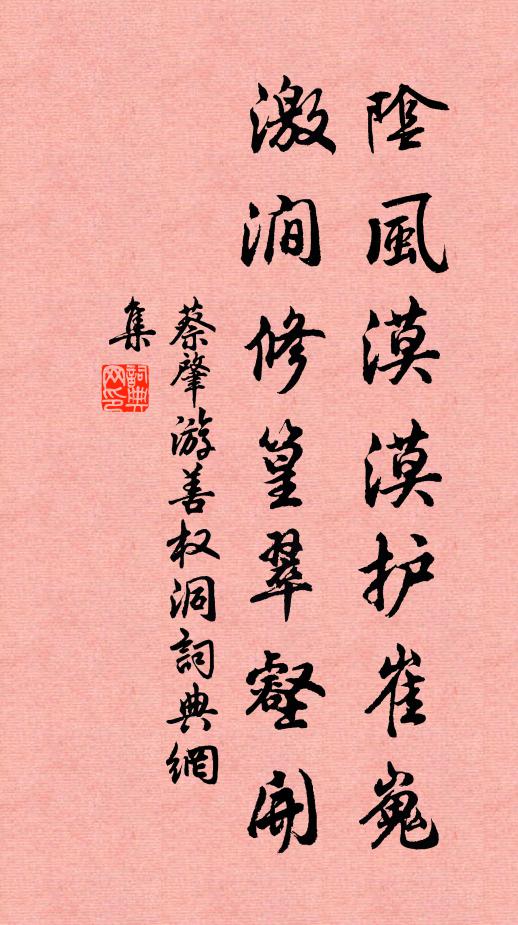 陰風漠漠护崔嵬
激澗修篁翠壑開
蔡肇游善权洞詞典網
集
詞典網印